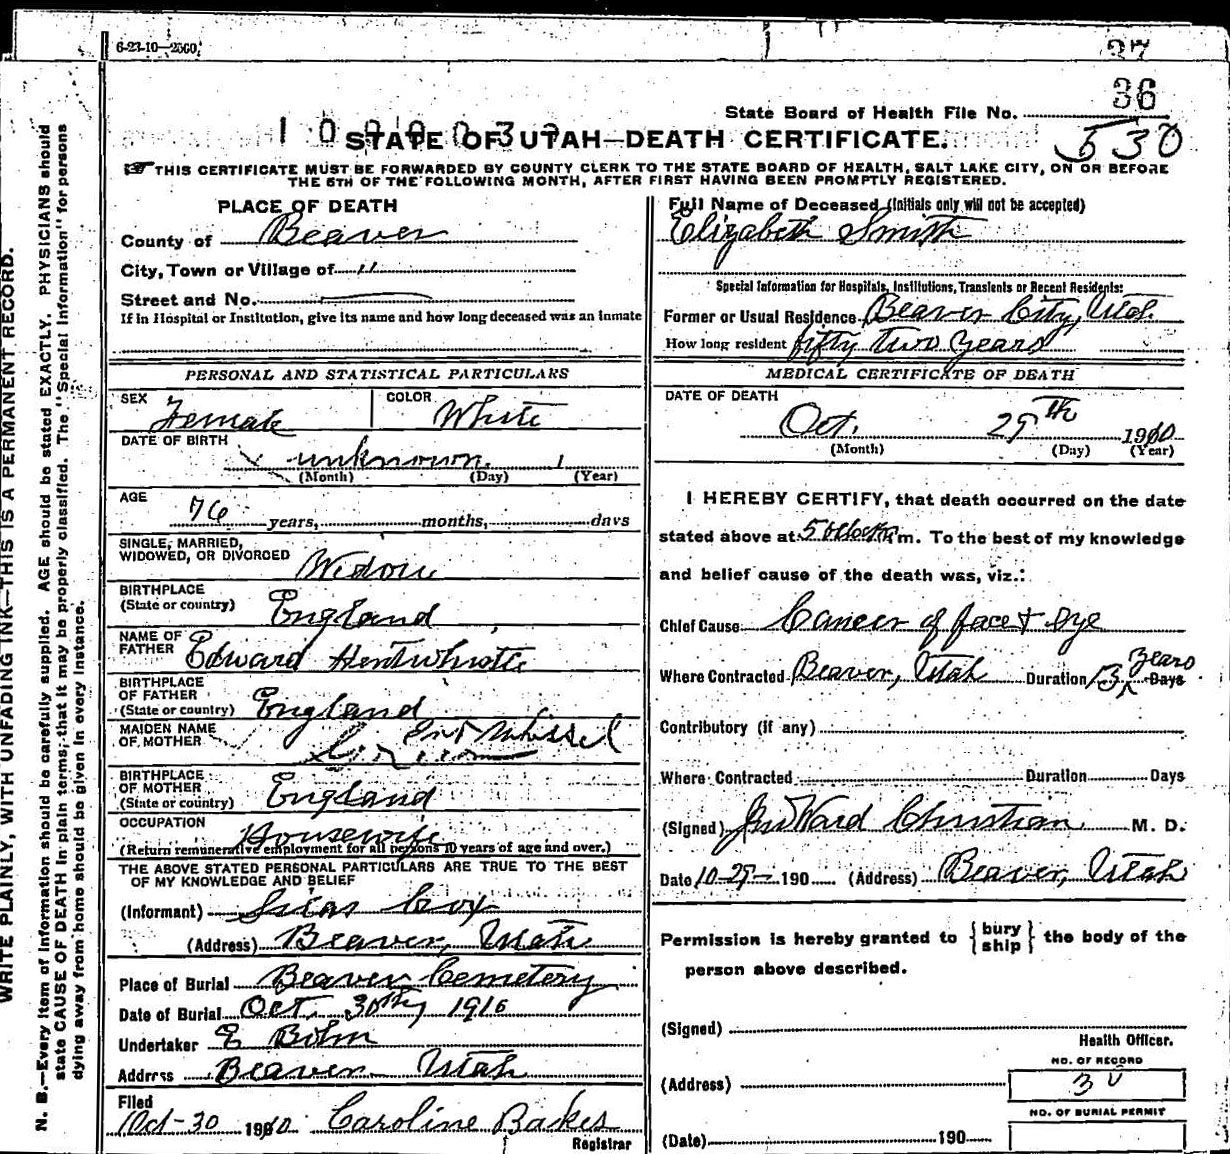 6-23-10—2500
37
State Board of Health File No. 36
STATE OF UTAH—DEATH CERTIFICATE.
530
THIS CERTIFICATE MUST BE FORWARDED BY COUNTY CLERK TO THE STATE BOARD OF HEALTH, SALT LAKE CITY, ON OR BEFORE
THE 5TH OF THE FOLLOWING MONTH, AFTER FIRST HAVING BEEN PROMPTLY REGISTERED.
WRITE PLAINLY, WITH UNFADING INK—THIS IS A PERMANENT RECORD.
N. B.—Every item of information should be carefully supplied. AGE should be stated EXACTLY. PHYSICIANS should
state CAUSE OF DEATH in plain terms, that it may be properly classified. The "Special Information" for persons
dying away from home should be given in every instance.
PLACE OF DEATH
County of Beaver
City, Town or Village of "
Street and No.
If in Hospital or Institution, give its name and how long deceased was an inmate
PERSONAL AND STATISTICAL PARTICULARS
SEX Female
COLOR White
DATE OF BIRTH
unknown 1
(Month) (Day) (Year)
AGE
76 years, months, days
SINGLE, MARRIED,
WIDOWED, OR DIVORCED Widow
BIRTHPLACE
(State or country) England
NAME OF
FATHER Edward Hentwhistle
BIRTHPLACE
OF FATHER
(State or country) England
MAIDEN NAME
OF MOTHER
BIRTHPLACE
OF MOTHER
(State or country) England
OCCUPATION Housewife
(Return remunerative employment for all persons 10 years of age and over.)
THE ABOVE STATED PERSONAL PARTICULARS ARE TRUE TO THE BEST
OF MY KNOWLEDGE AND BELIEF
(Informant) Silas Cox
(Address) Beaver, Utah
Place of Burial Beaver Cemetery
Date of Burial Oct. 30th, 1910
Undertaker E Bohn
Address Beaver Utah
Filed
Oct-30 1910 Caroline Bakes
Registrar
Full Name of Deceased (Initials only will not be accepted)
Elizabeth Smith
Special Information for Hospitals, Institutions, Transients or Recent Residents:
Former or Usual Residence Beaver City, Utah.
How long resident fifty two years
MEDICAL CERTIFICATE OF DEATH
DATE OF DEATH
Oct. 29th 1910
(Month) (Day) (Year)
I HEREBY CERTIFY, that death occurred on the date
stated above at 5 oclock m. To the best of my knowledge
and belief cause of the death was, viz.:
Chief Cause Cancer of face & Eye
Where Contracted Beaver, Utah Duration 13 years Days
Contributory (if any)
Where Contracted Duration Days
(Signed) Jno Ward Christian M. D.
Date 10-29- 190 (Address) Beaver, Utah
Permission is hereby granted to {bury ship} the body of the
person above described.
(Signed)
Health Officer.
(Address)
NO. OF RECORD
30
NO. OF BURIAL PERMIT
(Date) 190